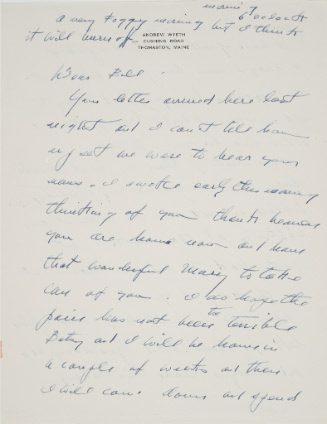 morning
6 oclock
a very foggy morning but I think
it will burn off
ANDREW WYETH
CUSHING ROAD
THOMASTON, MAINE
Dear Bill
Your letter arrived here last
night and I can't tell how
upset we were to hear your
news. I awoke early this morning
thinking of you thank heavens
you are home now and have
that wonderful Mary to take
care of you. I do hope the
pain has not been to terrible
Betsy and I will be home in
a couple of weeks and then
I will come down and spend